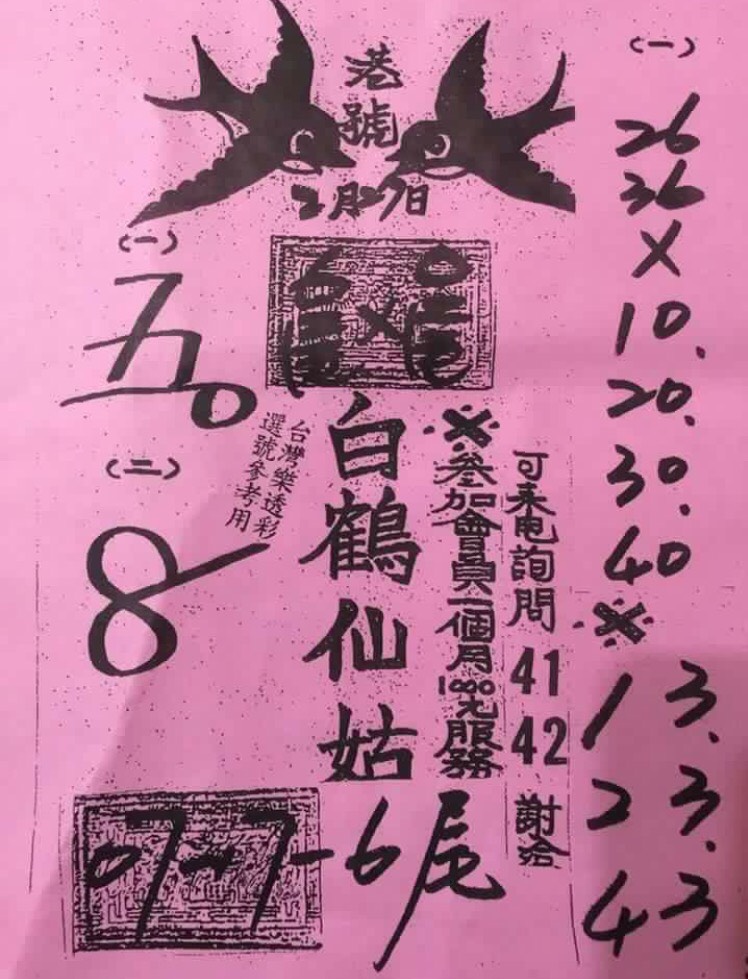 港
號
2月27日
(一)
26
36
X
10.
20.
30.
40
※
13.
23.
43
(一)
五0
(二)
8
台灣樂透彩
選號參考用
白鶴仙姑
※叄加會員一個月1000元服務
可来电詢問 41 42 謝洽
07-7-6尾